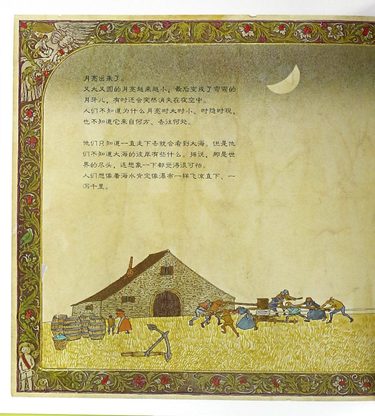 月亮出来了。
又大又圆的月亮越来越小，最后变成了弯弯的
月牙儿，有时还会突然消失在夜空中。
人们不知道为什么月亮时大时小、时隐时现，
也不知道它来自何方、去往何处。
他们只知道一直走下去就会看到大海。但是他
们不知道大海的彼岸有些什么。据说，那是世
界的尽头，连想象一下都觉得很可怕。
人们想像着海水肯定像瀑布一样飞流直下、一
泻千里。
6